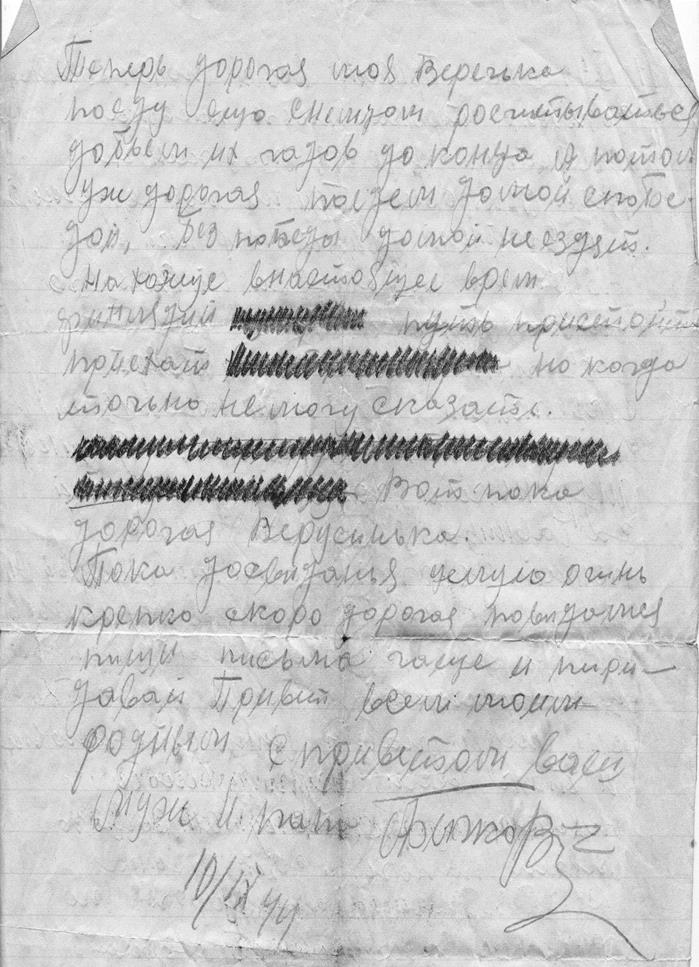 Теперь дорогая моя Веречька
поеду ещо снемцом росчитыватся
добьем их гадов до конца и потом
уж дорогая поедем домой спобе-
дой, Без победы домой не ездят.
На хожусе внастоящее время
путь
приехат но когда
точьно немогу сказать.
Вот пока
дорогая Верусинька.
Пока досвиданья целую очинь
крепко скоро дорогая повидаимся
пиши письма чаще и пири-
давай Привит всем моим
родным с приветом ваш
муж и папа
10/IX 44